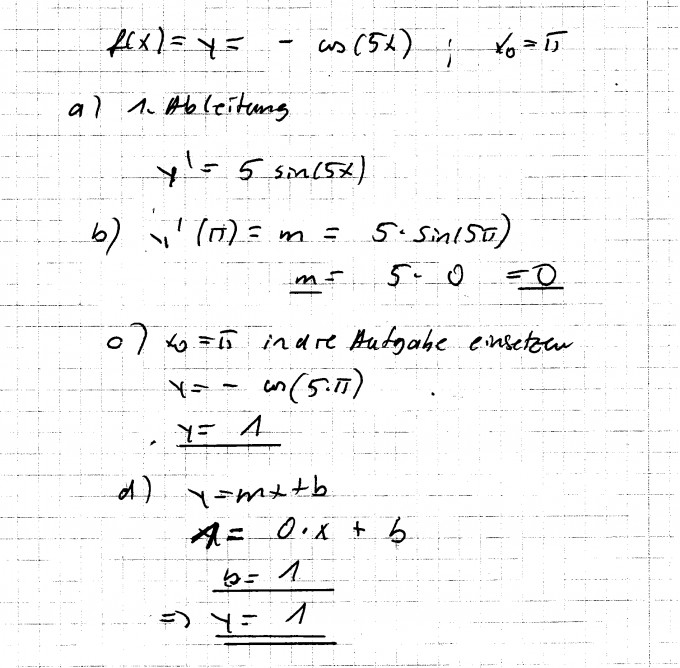 f(x) = y = - cos(5x) ; x₀ = π
a) 1. Ableitung
y' = 5 sin(5x)
b) y'(π) = m = 5 · sin(5π)
m = 5 · 0 = 0
c) x₀ = π in die Aufgabe einsetzen
y = - cos(5·π)
y = 1
d) y = mx + b
1 = 0·x + b
b = 1
=> y = 1